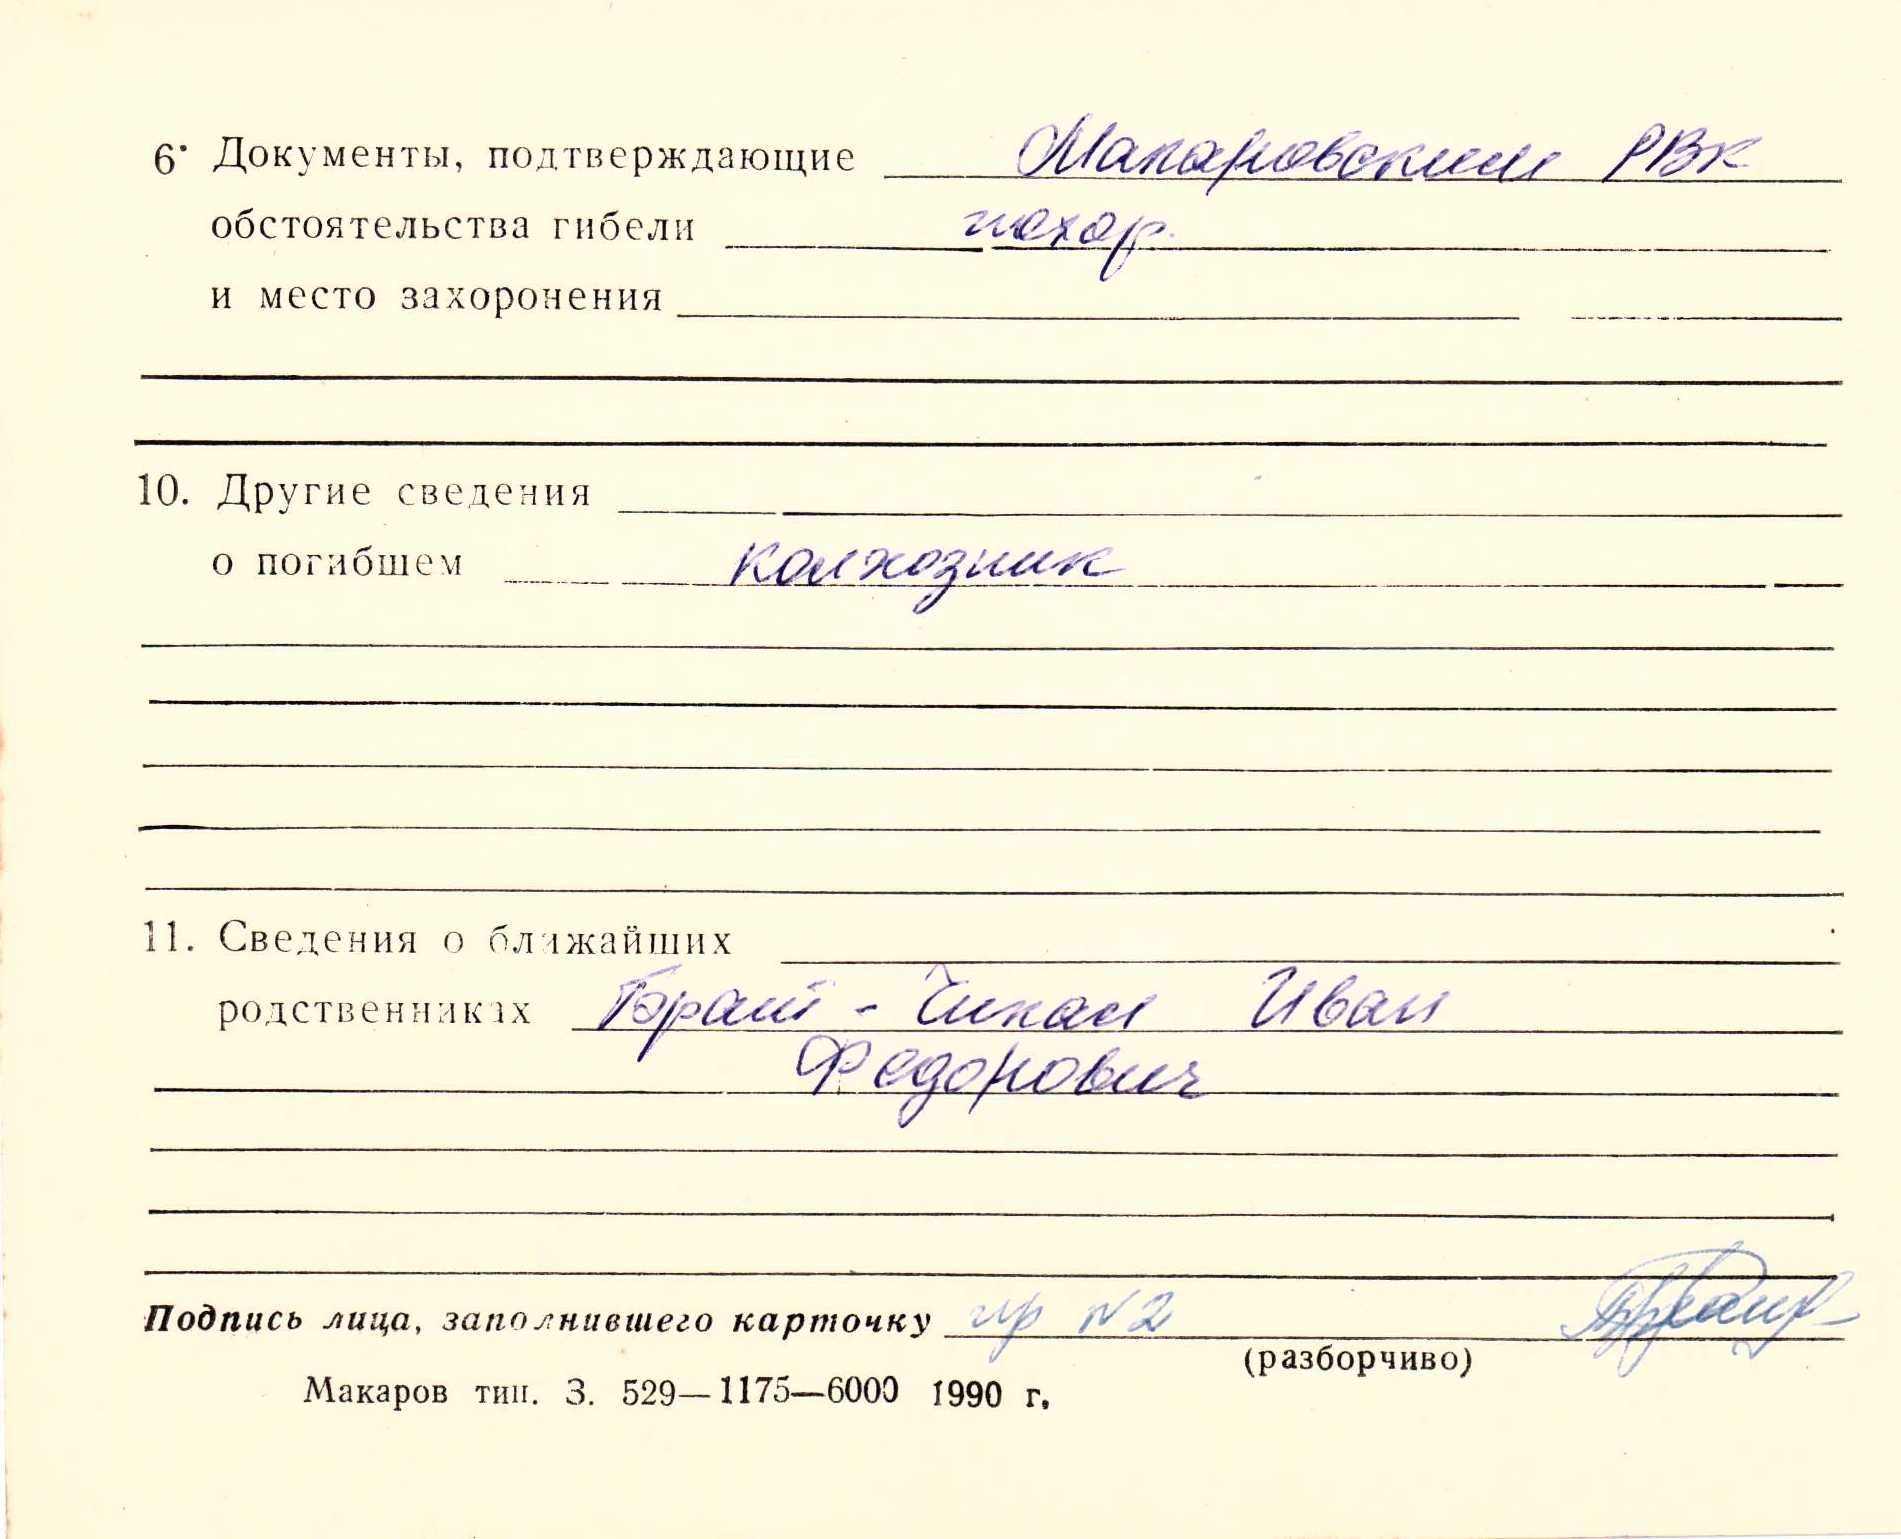 6. Документы, подтверждающие Макаровский РВК
обстоятельства гибели похор.
и место захоронения
10. Другие сведения
о погибшем колхозник
11. Сведения о ближайших
родственниках Брат - Чикал Иван
Федорович
Подпись лица, заполнившего карточку гр N2
(разборчиво)
Макаров тип. З. 529—1175—6000 1990 г.